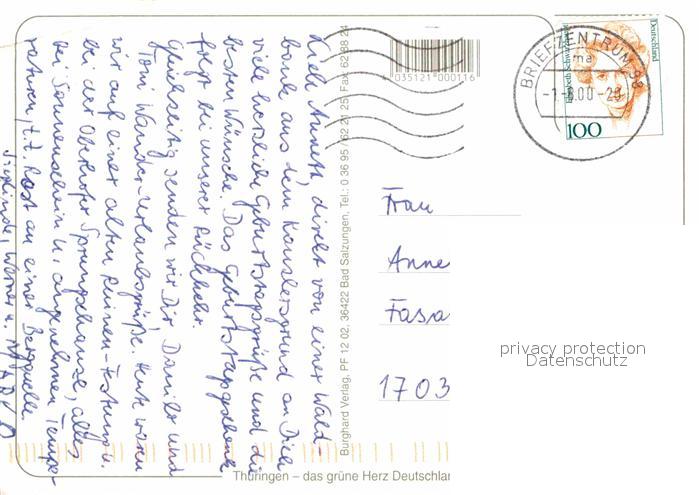 Liebe Annett, direkt von einer Wald-
bank aus dem Kanzlersgrund an Dich
viele herzliche Geburtstagsgrüße und die
besten Wünsche. Das Geburtstagsgeschenk
folgt bei unserer Rückkehr.
Gleichzeitig senden wir Dir, Daniel und
Toni Wander-Urlaubsgrüße. Heute waren
wir auf einer alten Ruinen-Festung u.
bei der Oberhofer Sprungschanze, alles
bei Sonnenschein u. angenehmen Temper-
aturen, z.Z. Rast an einer Bergquelle.
Werner u.
Burghard Verlag, PF 12 02, 36422 Bad Salzungen, Tel.: 0 36 95 / 62 21 25 Fax 62 88 24
4 035121 000116
BRIEFZENTRUM 98
-1.-8.00-20
Deutschland
100
Frau
Anne
Fasa
1703
privacy protection
Datenschutz
Thüringen – das grüne Herz Deutschlan